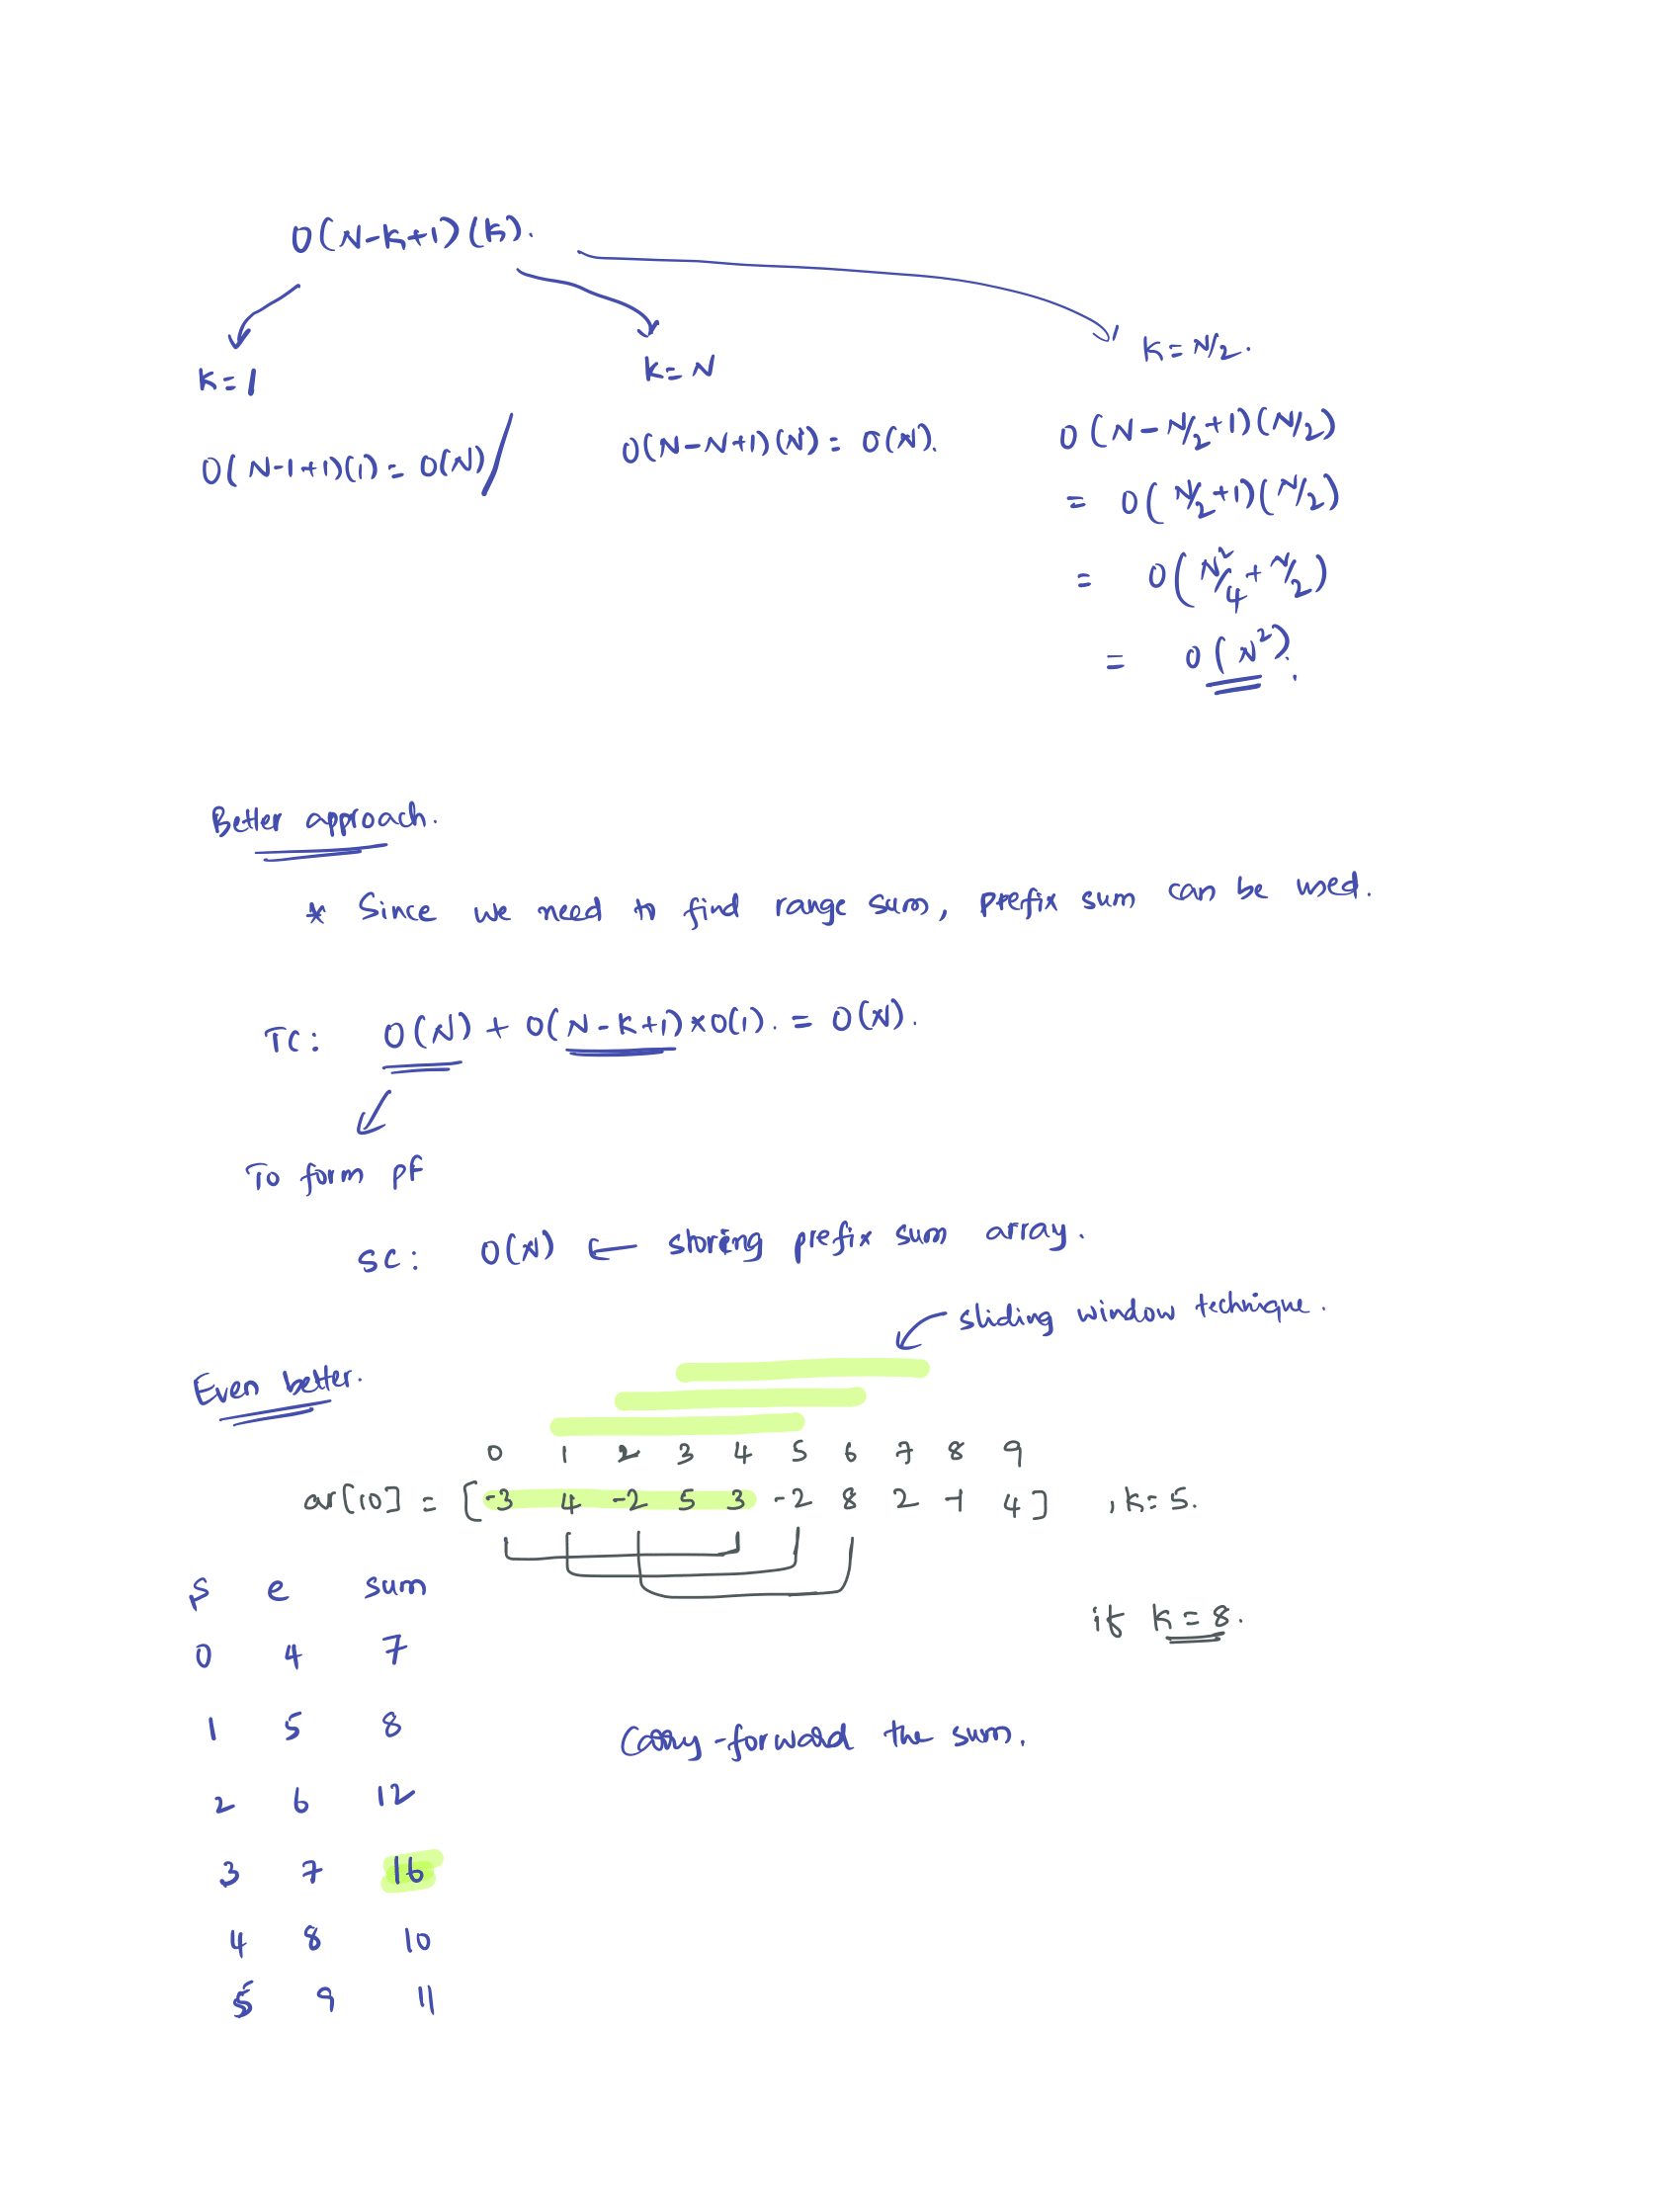 O(N-k+1)(k).
k=1
k=N
k=N/2.
O(N-1+1)(1) = O(N)/
O(N-N+1)(N) = O(N).
O(N-N/2+1)(N/2)
= O(N/2+1)(N/2)
= O(N²/4 + N/2)
= O(N²).
Better approach.
* Since we need to find range sum, prefix sum can be used.
TC: O(N) + O(N-k+1)xO(1). = O(N).
To form pf
SC: O(N) ← storing prefix sum array.
sliding window technique.
Even better.
0 1 2 3 4 5 6 7 8 9
ar[10] = [-3 4 -2 5 3 -2 8 2 -1 4] , k=5.
s e sum
0 4 7
if k=8.
1 5 8
Carry-forward the sum.
2 6 12
3 7 16
4 8 10
5 9 11